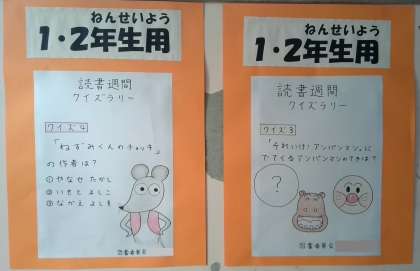 ねんせいよう
1・2年生用
読書週間
クイズラリー
クイズ4
「ねずみくんのチョッキ」
の作者は？
①やなせ たかし
②いもと ようこ
③なかえ よしを
図書委員会
ねんせいよう
1・2年生用
読書週間
クイズラリー
クイズ3
「それいけ！アンパンマン」に
でてくるアンパンマンのてきは？
？
図書委員会